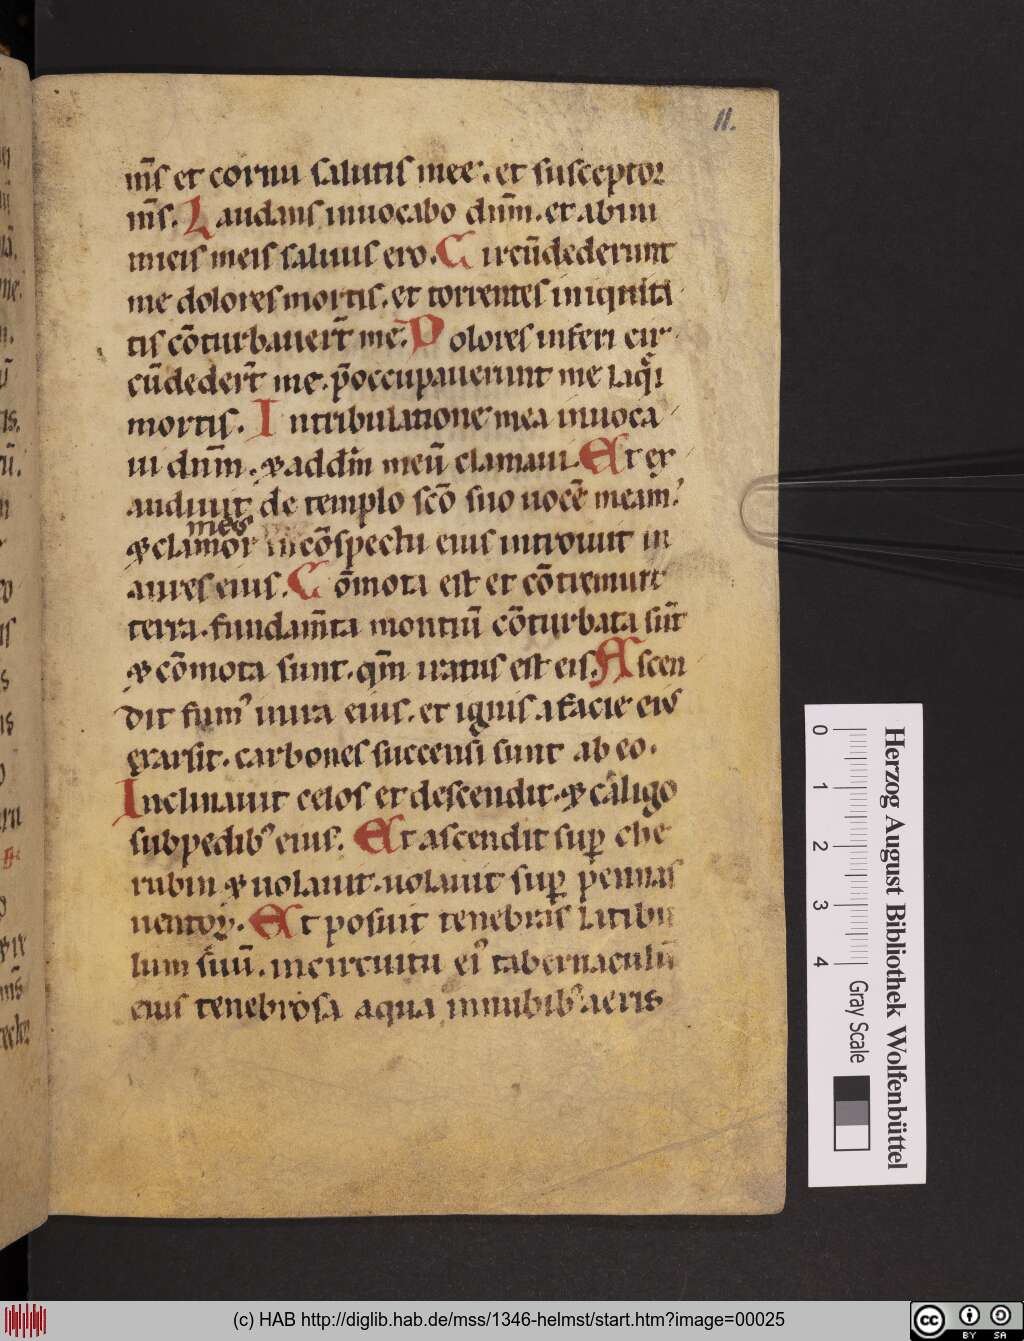 11.
m̅s et cornu salutis mee. et susceptor
m̅s. Laudans inuocabo dn̅m. et ab ini
micis meis saluus ero. Circu̅dederunt
me dolores mortis. et torrentes iniquita
tis co̅turbauer̅t me. Dolores inferi cir
cu̅deder̅t me. p̅occupauerunt me laq̇i
mortis. In tribulatione mea inuoca
ui dn̅m. ⁊ ad dm̅ meu̅ clamaui. Et ex
audiuit de templo sc̅o suo uoce̅ meam.
meus
⁊ clamor in co̅spectu eius introiuit in
aures eius. Co̅mota est et co̅tremuit
terra. fundam̅ta montiu̅ co̅turbata su̅t
⁊ co̅mota sunt. qm̅ iratus est eis. Ascen
dit fumꝰ in ira eius. et ignis a facie eiꝰ
exarsit. carbones succensi sunt ab eo.
Inclinauit celos et descendit. ⁊ caligo
sub pedibꝰ eius. Et ascendit sup̱ che
rubin ⁊ uolauit. uolauit sup̱ pennas
uentoꝝ. Et posuit tenebras latibu
lum suu̅. in circuitu eiꝰ tabernaculu̅
eius tenebrosa aqua in nubibꝰ aeris
Herzog August Bibliothek Wolfenbüttel
0 1 2 3 4 Gray Scale
(c) HAB http://diglib.hab.de/mss/1346-helmst/start.htm?image=00025
cc BY SA